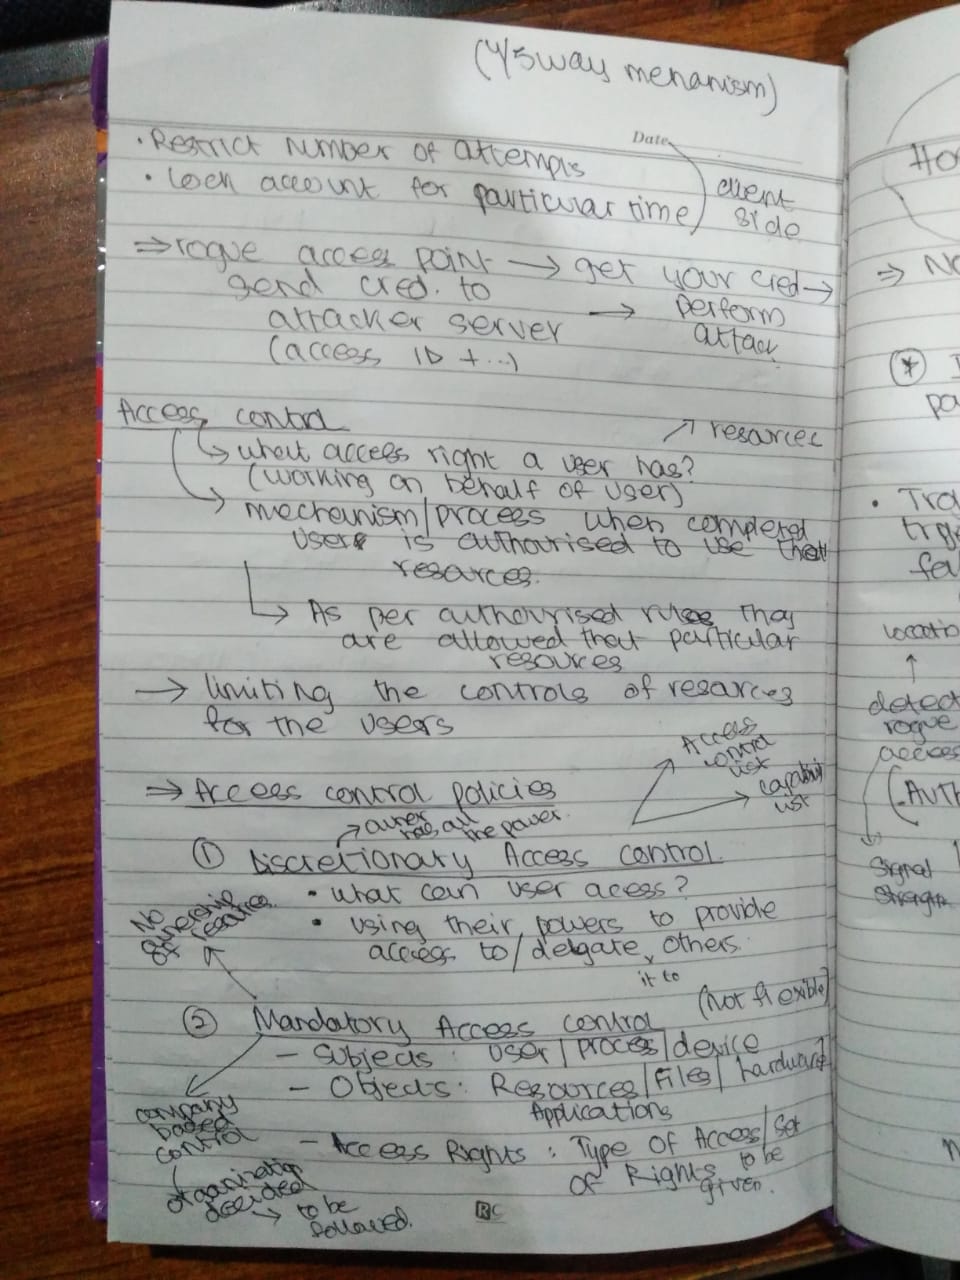 (4/5 way menanism)
Date
• Restrict number of attempts
• Lock account for particular time
client
side
⇒ rogue access point → get your cred →
send cred. to
attacker server → perform
attack
(access ID + ...)
Access control
→ resources
↳ what access right a user has?
(working on behalf of user)
→ mechanism/process when completed
user is authourised to use that
resources.
↳ As per authourised rules they
are allowed that particular
resources
→ limiting the controls of resources
for the users
⇒ Access control policies
Access
control
list
capability
list
→ owner
has all the power.
① Discretionary Access Control.
• what can user access?
• using their powers to provide
access to/delgate, others.
it to
No
ownership
of resources.
(Not flexible)
② Mandatory Access control
- Subjects : user/process/device
- Objects : Resources/Files/hardware/
Applications
company
based
control
- Access Rights : Type of Access/set
of Rights to be
given.
organization
decided
→ to be
followed.
RC
Ho
⇒ No
*
pa
• Tra
fea
locatio
↑
detect
rogue
access
(AUTH
Signal
Strength